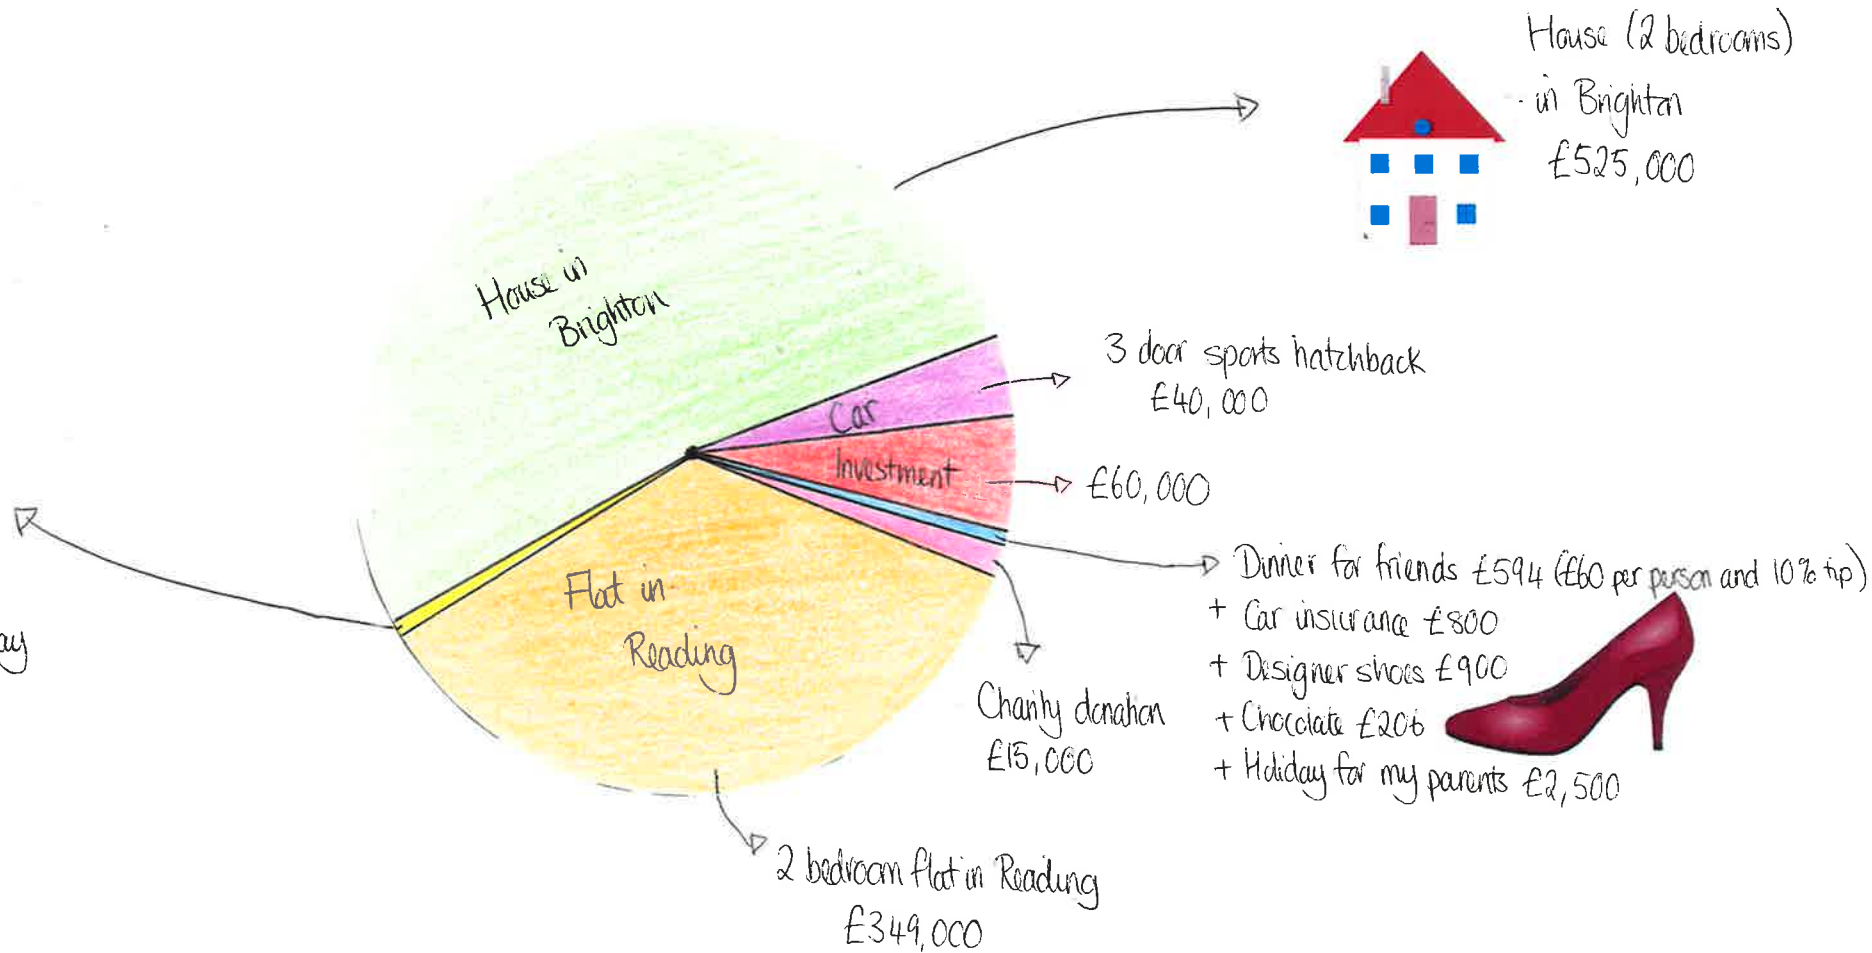 House (2 bedrooms)
in Brighton
£525,000
House in
Brighton
3 door sports hatchback
£40,000
Car
Investment
£60,000
Dinner for friends £594 (£60 per person and 10% tip)
+ Car insurance £800
+ Designer shoes £900
+ Chocolate £206
+ Holiday for my parents £2,500
Flat in
Reading
Charity donation
£15,000
2 bedroom flat in Reading
£349,000